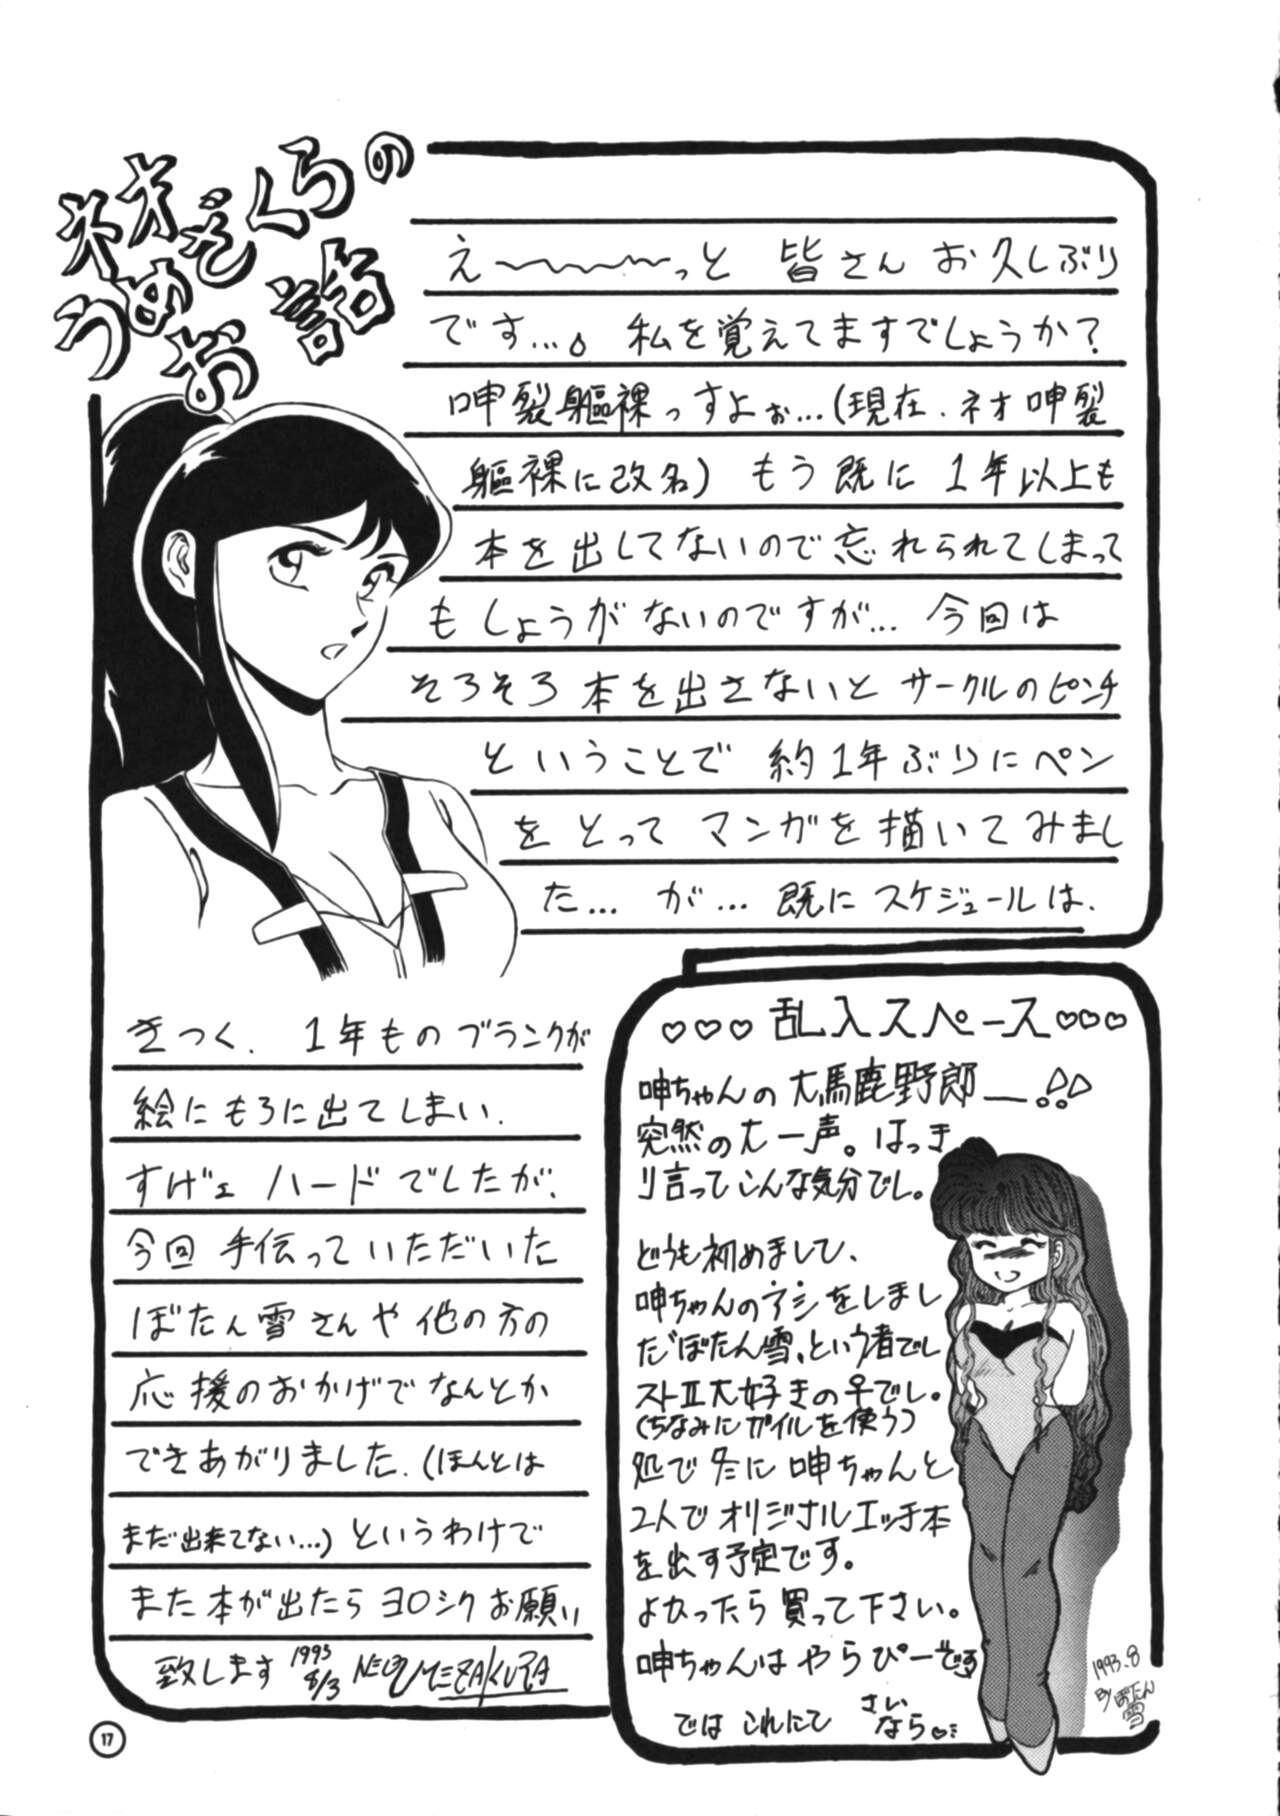 ネオ
うめざくらの
お話
え〜〜〜〜っと 皆さん お久しぶり
です...。私を覚えてますでしょうか?
呻裂軀裸っすよぉ...(現在、ネオ呻裂
軀裸に改名) もう既に 1年以上も
本を出してないので忘れられてしまって
もしょうがないのですが... 今回は
そろそろ本を出さないと サークルのピンチ
ということで 約1年ぶりにペン
をとって マンガを描いてみまし
た... が... 既にスケジュールは、
きつく、 1年ものブランクが
絵にもろに出てしまい、
すげェ ハードでしたが、
今回 手伝っていただいた
ぼたん雪さんや他の方の
応援のおかげでなんとか
できあがりました。(ほんとは
まだ出来てない...) というわけで
また本が出たら ヨロシクお願い
致します 1993 8/3 NEO UMEZAKURA
♡♡♡ 乱入スペース♡♡♡
呻ちゃんの大馬鹿野郎ー!!
突然の大一声。はっき
り言ってこんな気分でし。
どうも初めまして、
呻ちゃんのアシをしまし
た“ぼたん雪”という者でし
ストⅡ大好きの♀でし。
(ちなみにガイルを使う)
処で冬に呻ちゃんと
2人でオリジナルエッチ本
を出す予定です。
よかったら買って下さい。
呻ちゃんはやらぴーです
では これにて さい
なら♡
1993.8
By ぼたん
雪
17